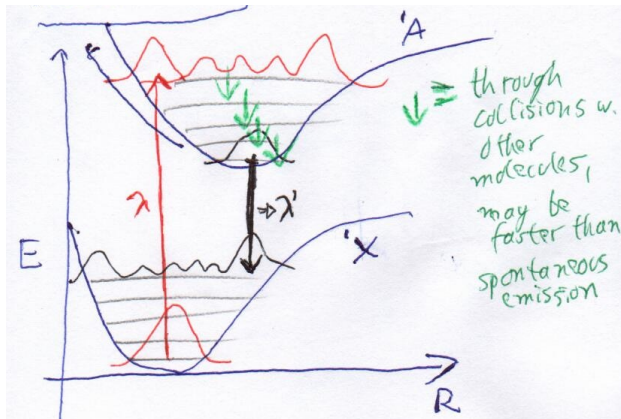 'A
↓ = through
collisions w.
other
molecules,
may be
faster than
spontaneous
emission
λ
⇒λ'
'X
E
R